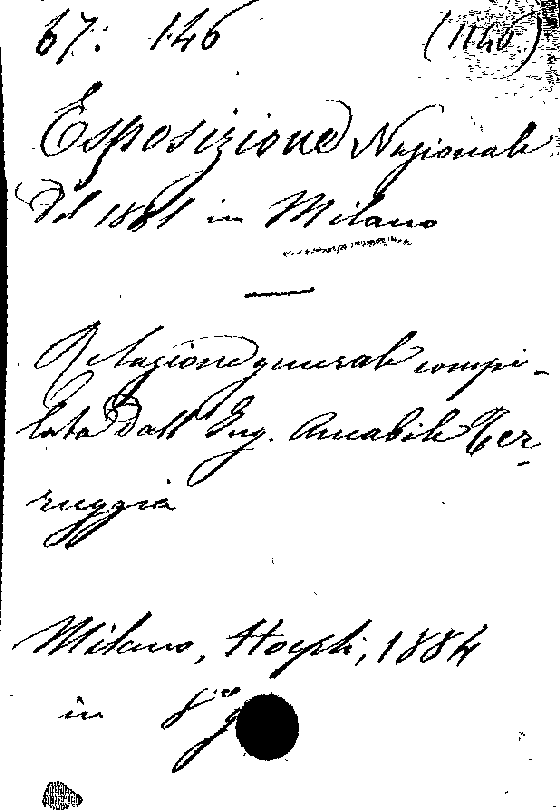 67. 146 (1140)
Esposizione Nazionale
del 1881 in Milano
Relazione generale compi-
lata dall' Ing. Amabile Ter-
ruggia
Milano, Hoepli, 1884
in 8°